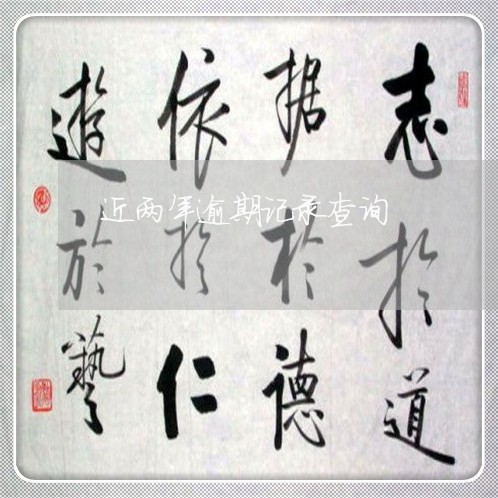 志於道
据於德
依於仁
遊於藝
近两年逾期记录查询